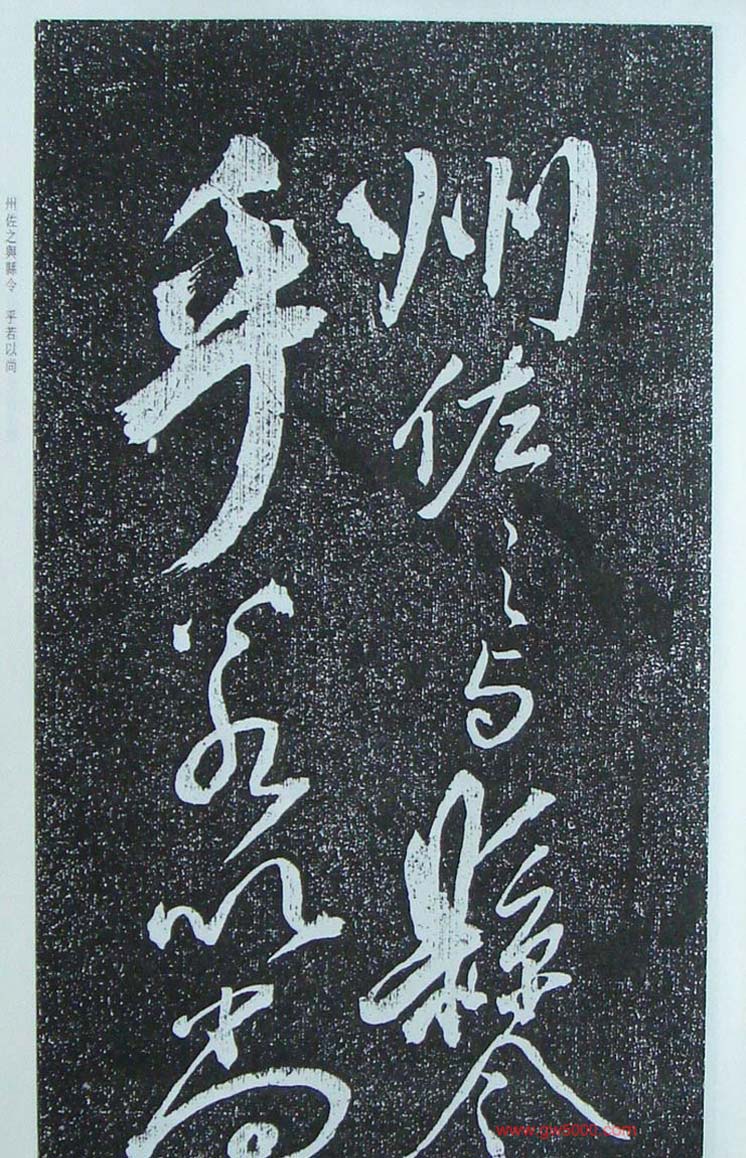 州佐之与縣令
乎若以尚
州佐之與縣令 乎若以尚
www.gw5000.com